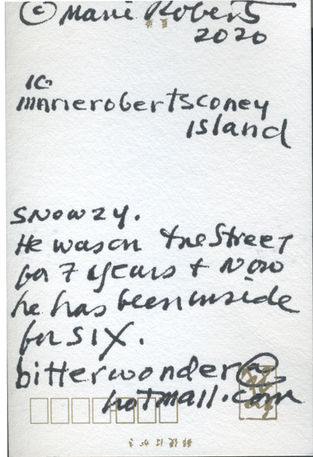 © Marie Roberts
2020
IG
marierobertsconey
island
SNOWZY.
He was on the Street
for 7 years + NOW
he has been inside
for SIX.
bitterwonder@
hotmail.com